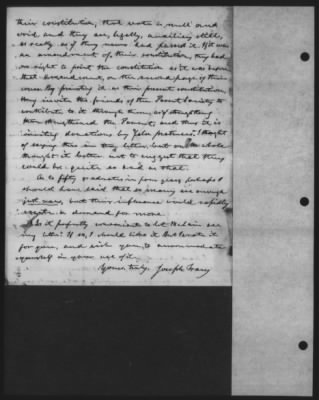 their constitution, that vote is null and
void and they are, legally, auxiliary still,
as really as if they never had passed it. If it was
an amendment of their constitution, they had
no right to print the constitution as it was before
that amendment, on the second page of their
cover. By printing it as their present constitution,
they invite the friends of the Parent Society to
contribute to it through them, as if strengthening
them strengthened the Parent; and thus it is
inviting donations by false pretences. I thought
of saying this in my letter, but on the whole
thought it better not to suggest that they
could be quite as bad as that.
As to fifty graduates in four years, perhaps I
should have said that so many are enough
just now, but their influence would rapidly
create a demand for more.
Is it perfectly convenient to let McLain see
my letter? If so, I should like it. But I wrote it
for you, and wish you to accommodate
yourself in your use of it.
Yours truly, Joseph Tracy